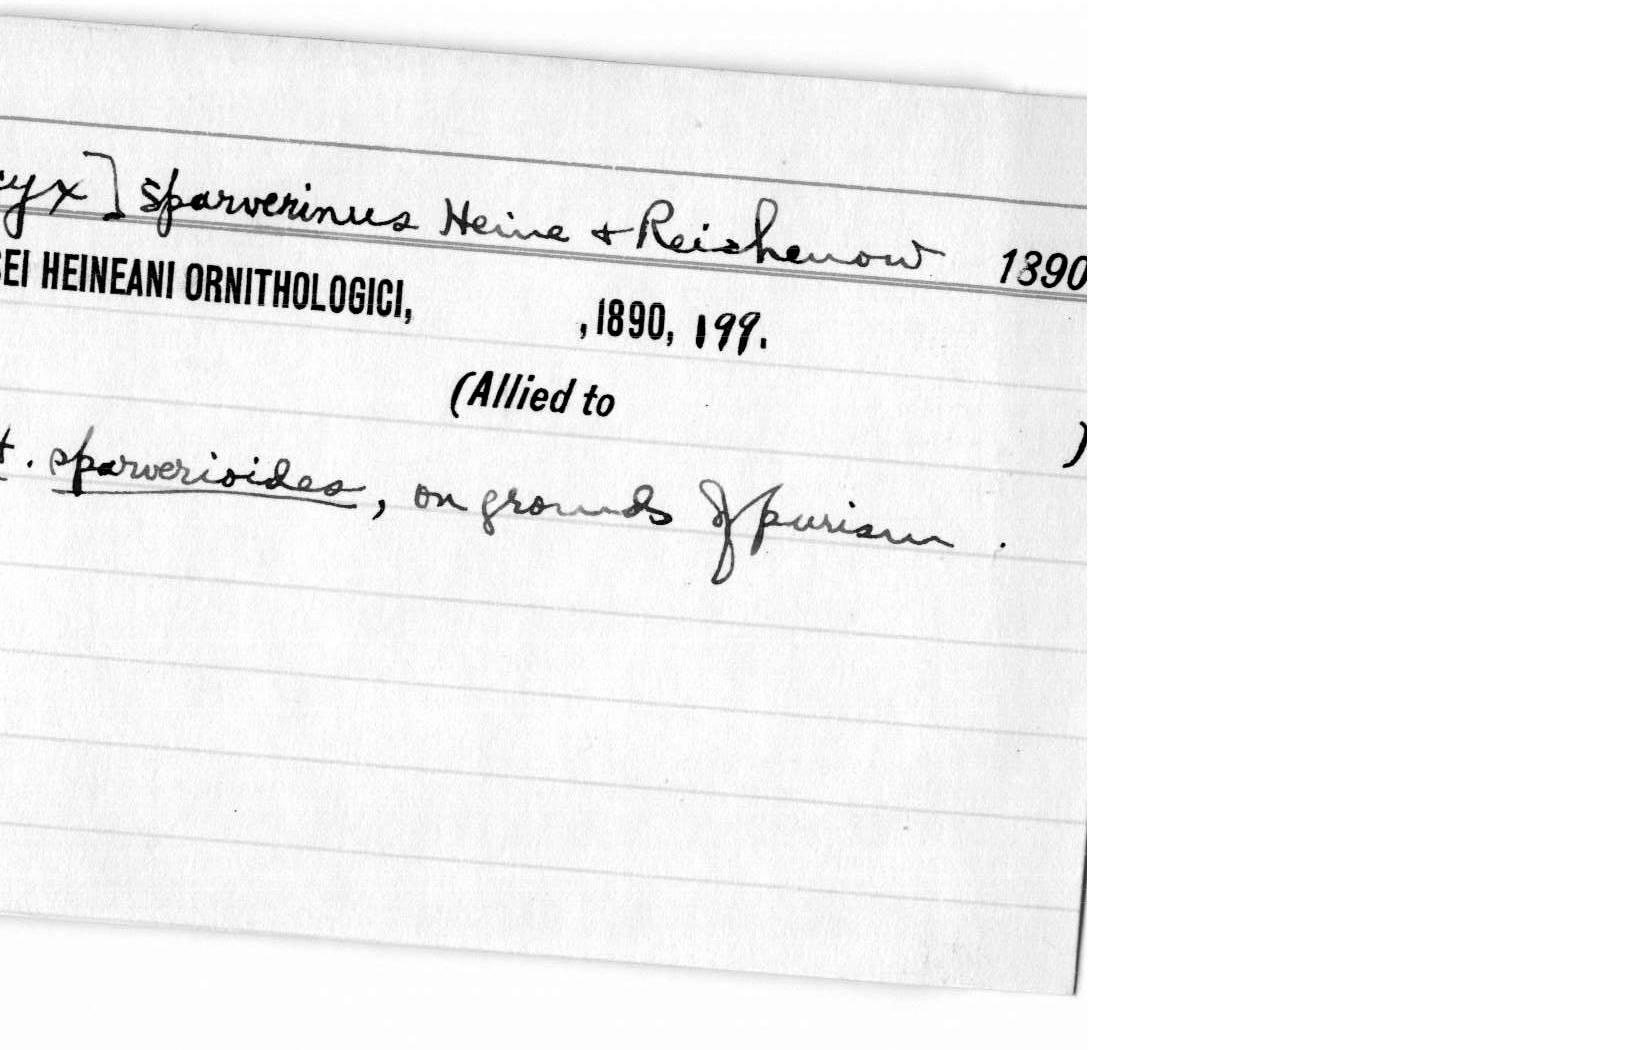 cyx] sparverinus Heine + Reichenow 1890
EI HEINEANI ORNITHOLOGICI, , 1890, 199.
(Allied to )
t. sparverioides, on grounds of purism.